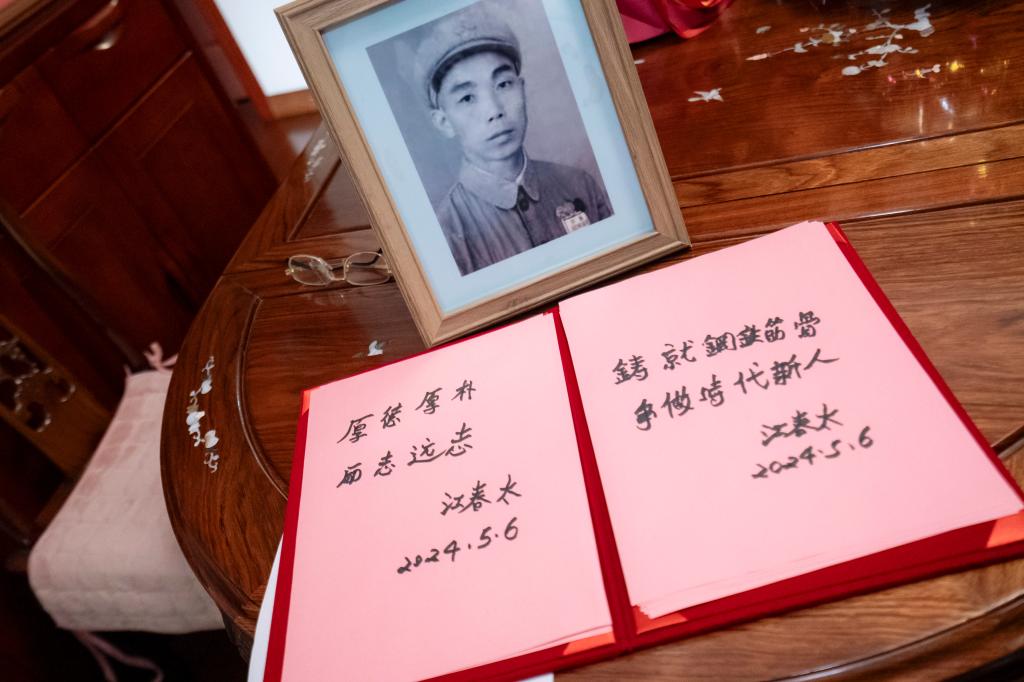 厚德厚朴
志远志
江春太
2024.5.6
鑄就鋼鐵筋骨
争做時代新人
江春太
2024.5.6